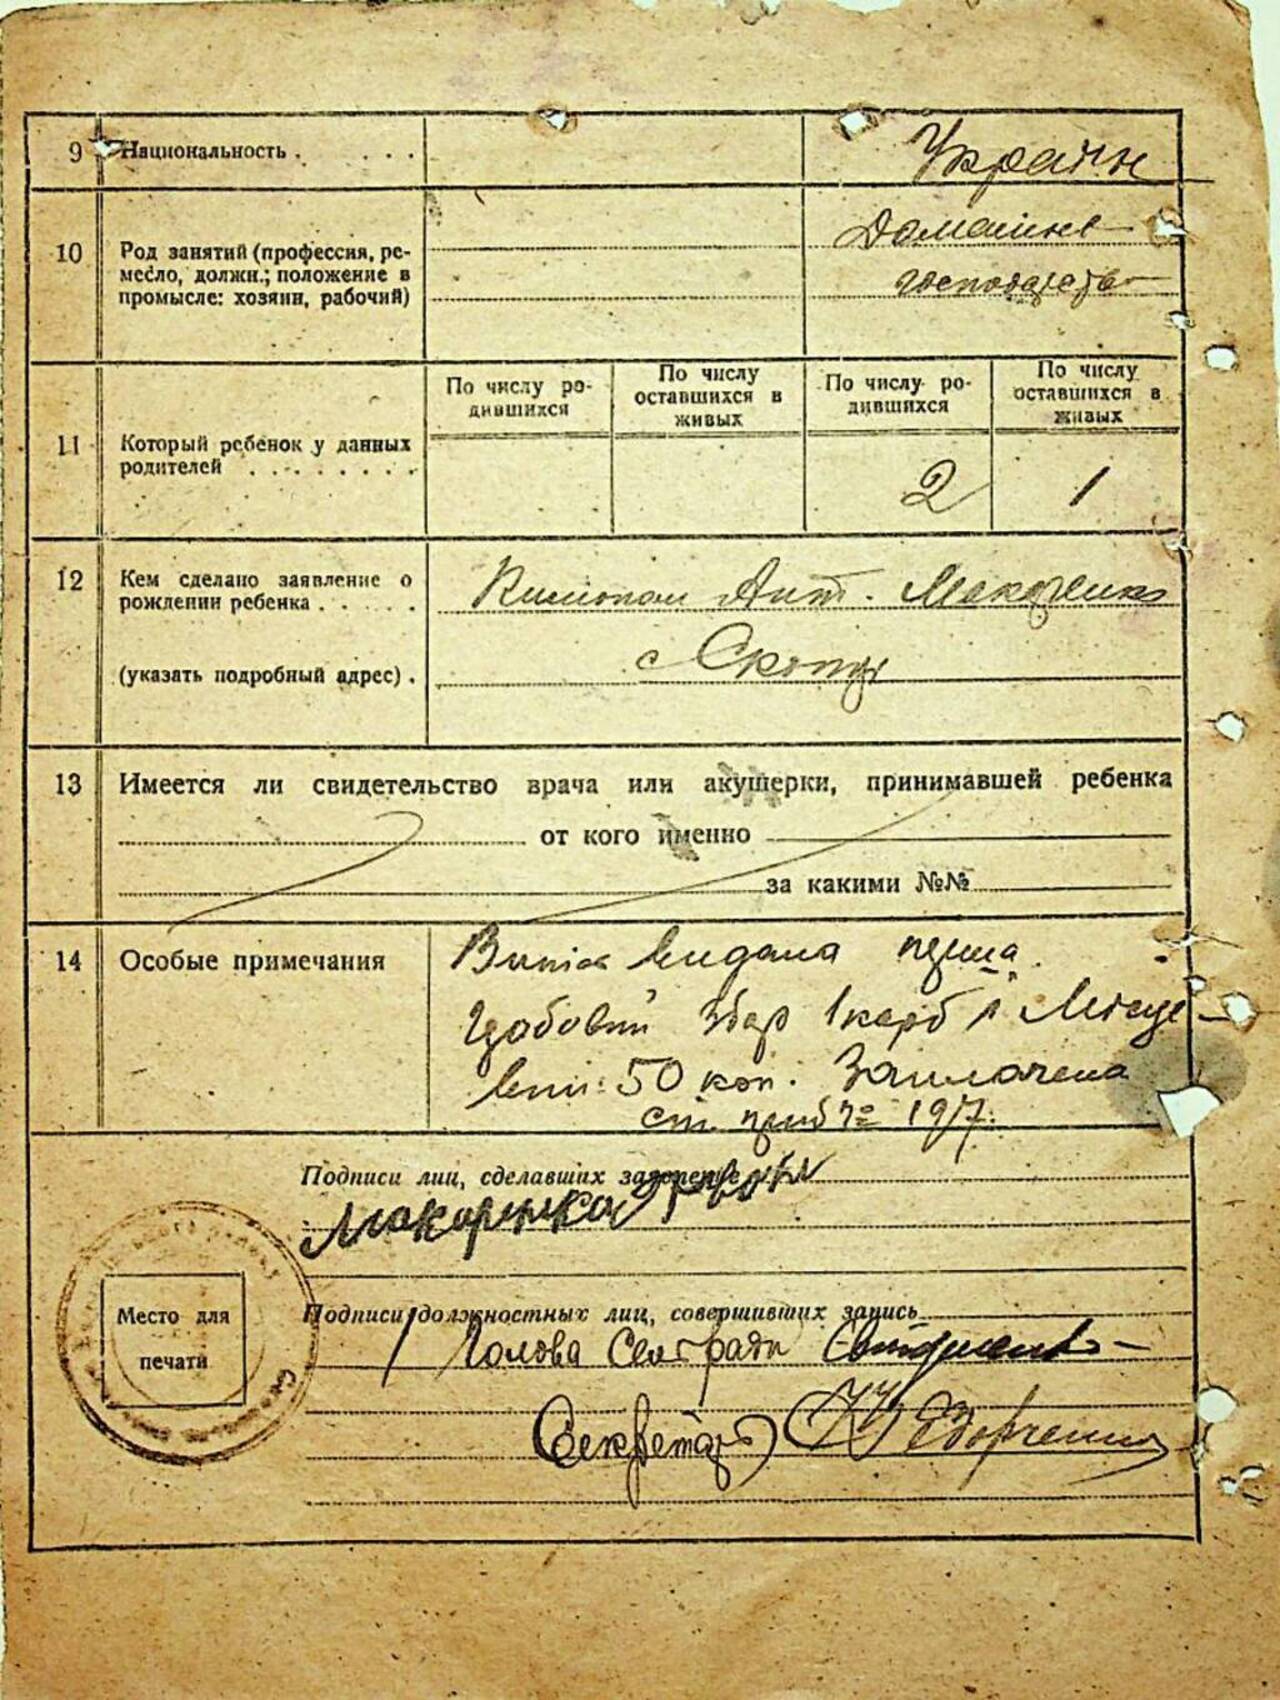 9 Национальность . . . . .
Украін
10 Род занятий (профессия, ре-
месло, должн.; положение в
промысле: хозяин, рабочий)
Домашнє
господарство
11 Который ребенок у данных
родителей . . . . . . . .
По числу ро-
дившихся
По числу
оставшихся в
живых
По числу ро-
дившихся
По числу
оставшихся в
живых
2 1
12 Кем сделано заявление о
рождении ребенка . . . . .
Ант. Макаренко
(указать подробный адрес) .
с
13 Имеется ли свидетельство врача или акушерки, принимавшей ребенка
от кого именно
за какими №№
14 Особые примечания
видана перша
збор 1 карб
50 коп. Заплачена
ст.
Подписи лиц, сделавших заявление
Макаренко
Место для
печати
Подписи должностных лиц, совершивших запись
Голова Сельради
Секретарь